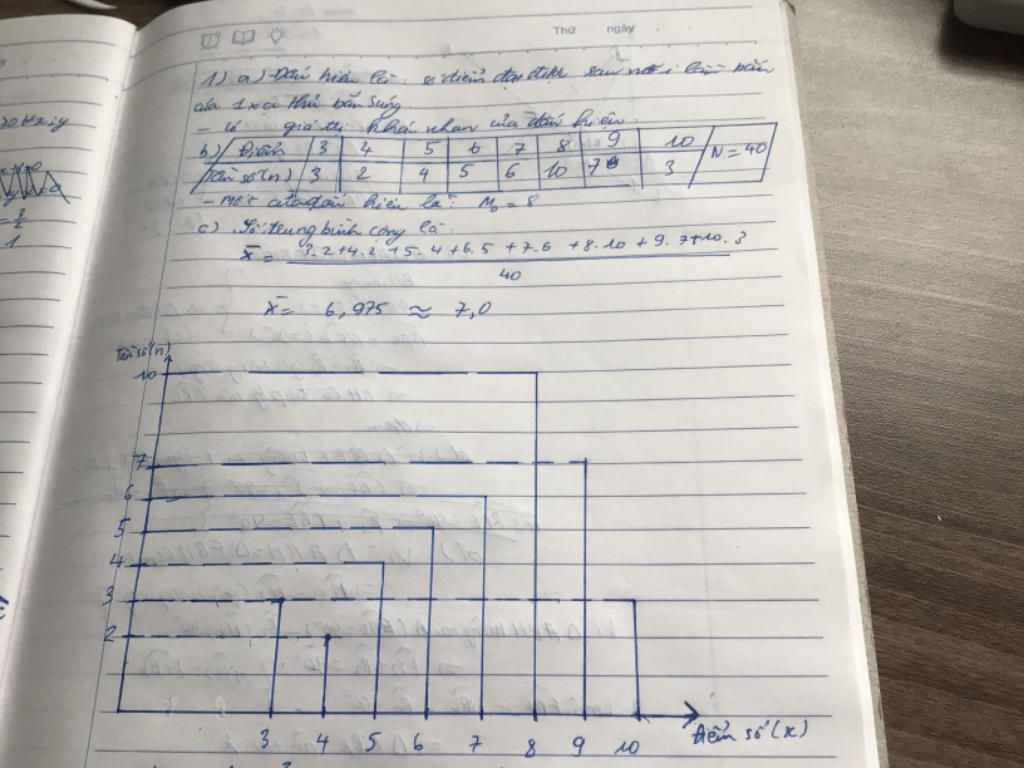 Thứ ngày
1) a) Dấu hiệu là: số điểm đạt được sau mỗi lần bắn
của 1 xạ thủ bắn súng.
- Có giá trị khác nhau của dấu hiệu.
b) Điểm 3 4 5 6 7 8 9 10 N = 40
Tần số (n) 3 2 4 5 6 10 7 3
- Mốt của dấu hiệu là: M₀ = 8
c) Số trung bình cộng là
x̄ = 3.2+4.2+5.4+6.5+7.6+8.10+9.7+10.3
40
x̄ = 6,975 ≈ 7,0
Tần số (n)
10
7
6
5
4
3
2
3 4 5 6 7 8 9 10
Điểm số (x)